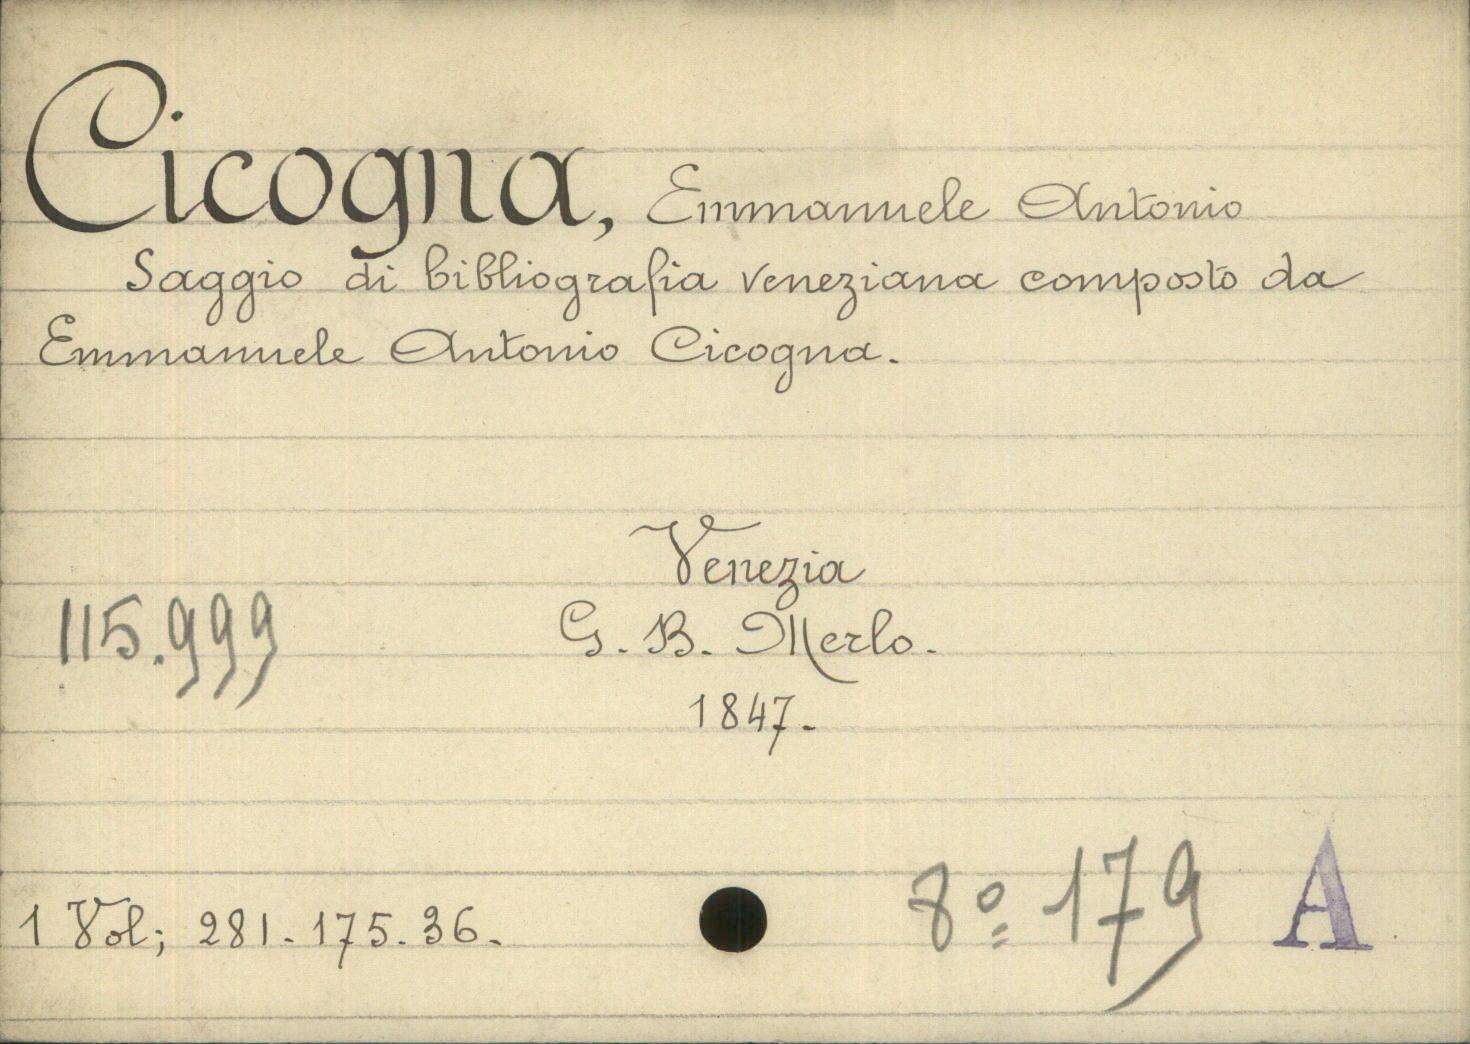 Cicogna, Emmanuele Antonio
Saggio di bibliografia veneziana composto da
Emmanuele Antonio Cicogna.
Venezia
115.999
G. B. Merlo.
1847.
1 Vol; 281. 175. 36.
8º 179 A